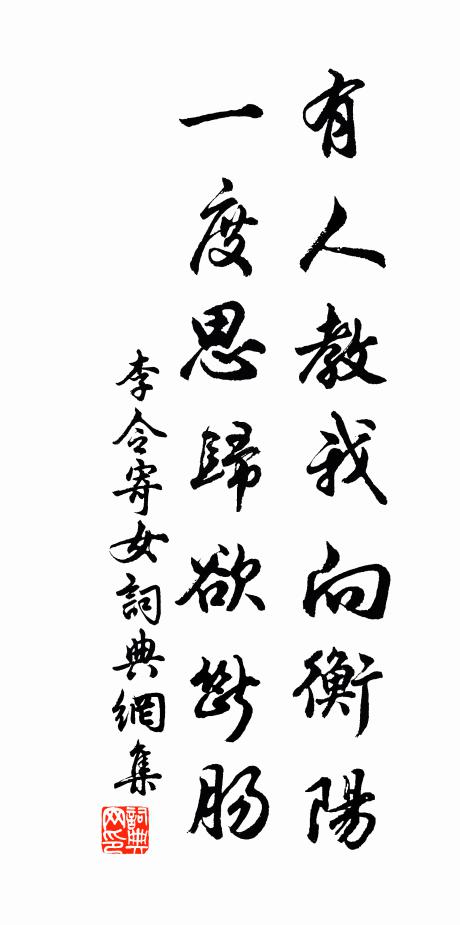 有人教我向衡陽
一度思歸欲斷腸
李令寄女詞典網集
詞典网印